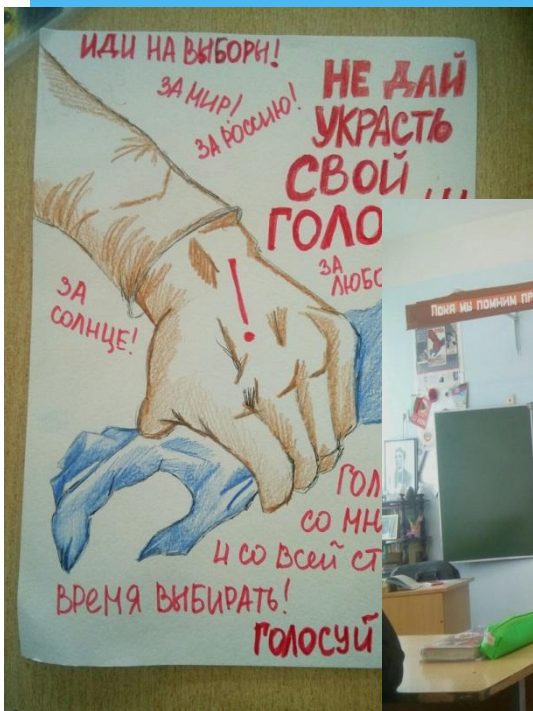 ИДИ НА ВЫБОРЫ!
ЗА МИР!
ЗА РОССИЮ!
НЕ ДАЙ
УКРАСТЬ
СВОЙ
ГОЛО
!!!
ЗА
ЛЮБО
ЗА
СОЛНЦЕ!
!
ГОЛ
СО МН
И СО ВСЕЙ СТ
ВРЕМЯ ВЫБИРАТЬ!
ГОЛОСУЙ
ПОКА МЫ ПОМНИМ ПР